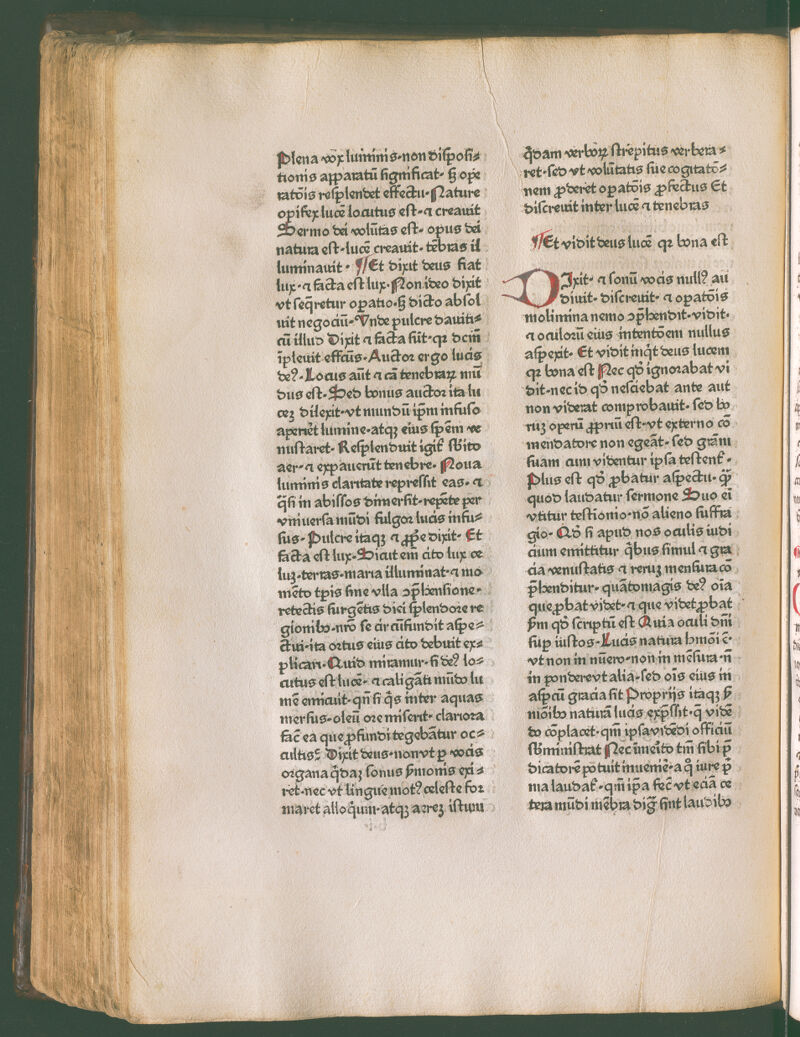 Plena vox luminis·non disposi⸗
tionis apparatū significat· sꝫ oꝑe
ratōis resplendet effectu·Nature
opifex lucē locutus est·⁊ creauit
Sermo dei volūtas est· opus dei
natura est·lucē creauit· tēbras il
luminauit· ¶Et dixit deus fiat
lux·⁊ facta est lux·Non ideo dixit
vt seq̄retur oꝑatio·sꝫ dicto absol
uit negociū·Vnde pulcre dauiti⸗
cū illud Dixit ⁊ facta sūt·qꝛ dcm̄
īpleuit effcūs·Auctor ergo lucis
deꝰ·Locus aūt ⁊ cā tenebraꝝ mū
dus est·Sed bonus auctor ita lu
ceꝫ dilexit·vt mundū ip̄m infuso
aperiēt lumine·atqꝫ eius sp̄em ve
nustaret· Resplenduit igit᷑ sb̄ito
aer·⁊ expauerūt tenebre·Noua
luminis claritate repressit eas·⁊
q̄si in abissos dimersit·repēte per
vniuersa mūdi fulgor lucis infu⸗
sus·Pulcre itaqꝫ ⁊ ꝓp̄e dixit· Et
facta est lux·Sicut em̄ cito lux ce
luꝫ·terras·maria illuminat·⁊ mo
mēto tp̄is sine vlla ꝯp̄hensione·
retectis surgētis diei splendore re
gionibꝫ·nr̄o se circūfundit aspe⸗
ctui·ita ortus eius cito debuit ex⸗
plicari·Quid miramur·si deꝰ lo⸗
cutus est lucē·⁊ caligāti mūdo lu
mē emicuit·qn̄ si q̄s inter aquas
mersus·oleū ore miserit· clariora
fac̄ ea que ꝓfundi tegebātur oc⸗
cultis᷑ Dixit deus·non vt ꝑ vocis
organa q̄daꝫ sonus ẜmonis exi⸗
ret·nec vt lingue motꝰ celeste for
maret alloq̄um·atqꝫ aereꝫ istum
q̄dam verboꝝ strepitus verbera⸗
ret·sed vt volūtatis sue cogitatō⸗
nem ꝓderet oꝑatōis ꝓfectus Et
discreuit inter lucē ⁊ tenebras
¶Et vidit deus lucē qꝛ bona est
DIxit· ⁊ sonū vocis nullꝰ au
diuit· discreuit· ⁊ oꝑatōis
molimina nemo ꝯp̄hendit·vidit·
⁊ oculorū eius intentōem nullus
aspexit· Et vidit inq̄t deus lucem
qꝛ bona est Nec qđ ignorabat vi
dit·nec id qđ nesciebat ante aut
non viderat comprobauit· sed bo
ruꝫ operū ꝓpriū est·vt externo cō
mendatore non egeāt·sed gr̄am
suam cum videntur ipsa testent᷑·
Plus est qđ ꝓbatur aspectu·q̄
quod laudatur sermone Suo ei̅
vtitur testīonio·nō alieno suffra
gio· Qđ si apud nos oculis iudi
cium emittitur q̄bus simul ⁊ gra
cia venustatis ⁊ reruꝫ mensura cō
p̄henditur·quātomagis deꝰ oīa
que ꝓbat videt·⁊ que videt ꝓbat
ẜm qđ scriptū est Quia oculi dn̄i
suꝑ iustos·Lucis natura hmōi ē·
vt non in nūero·non in mēsura·n̄
in pondere vt alia·sed oīs eius in
asp̄cū gracia sit Proprijs itaqꝫ ẜ
mōibꝫ naturā lucis exp̄ssit·q̄ vidē
do cōplacet·qm̄ ipsa vidēdi officiū
sb̄ministrat Nec īmeīto tm̄ sibi p̄
dicatorē potuit inueniē·a q̄ iure p̄
ma laudat᷑·qm̄ ip̄a fec̄ vt ecia ce
tera mūdi mēbra dig̅ sint laudibꝫ